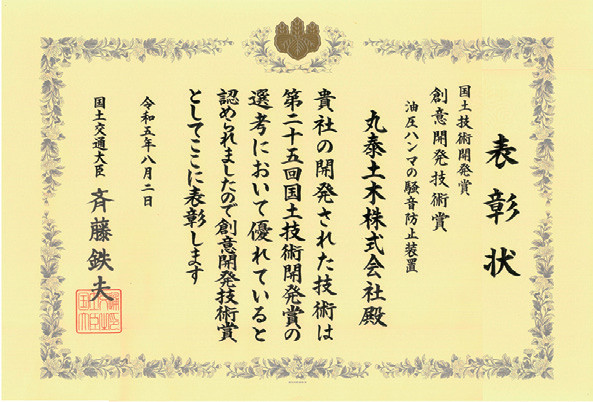 表彰状
国土技術開発賞
創意開発技術賞
油圧ハンマの騒音防止装置
丸泰土木株式会社殿
貴社の開発された技術は
第二十五回国土技術開発賞の
選考において優れていると
認められましたので創意開発技術賞
としてここに表彰します
令和五年八月二日
国土交通大臣 斉藤鉄夫